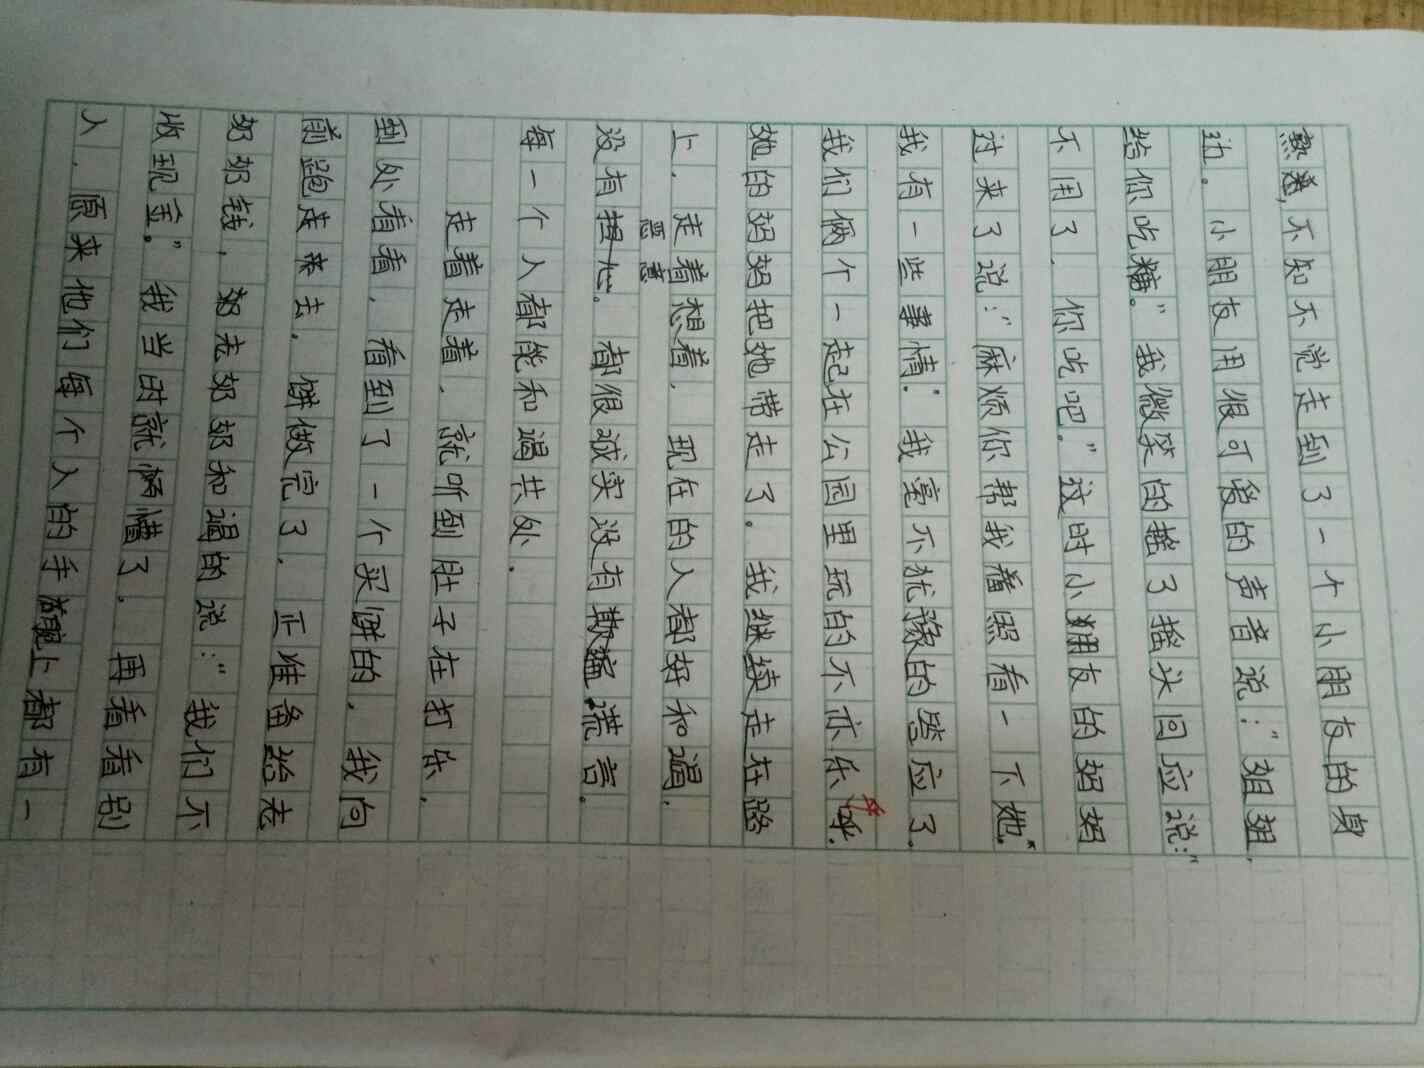 熟悉,不知不觉走到了一个小朋友的身
边。小朋友用很可爱的声音说:"姐姐,
给你吃糖。"我微笑的摇了摇头回应说:"
不用了,你吃吧。"这时小朋友的妈妈
过来了说:"麻烦你帮我照看一下她"
我有一些事情."我毫不犹豫的答应了.
我们俩个一起在公园里玩的不亦乐乎.
她的妈妈把她带走了。我继续走在路
上,走着想着,现在的人都好和谒,
没有恶意。都很诚实没有欺骗谎言.
每一个人都能和谒共处.
走着走着,就听到肚子在打乐,
到处看看,看到了一个买饼的,我向
前跑走来去,饼做完了,正准备给老
奶奶钱,老奶奶和谒的说:"我们不
收现金。"我当时就懵了.再看看别
人,原来他们每个人的手腕上都有一